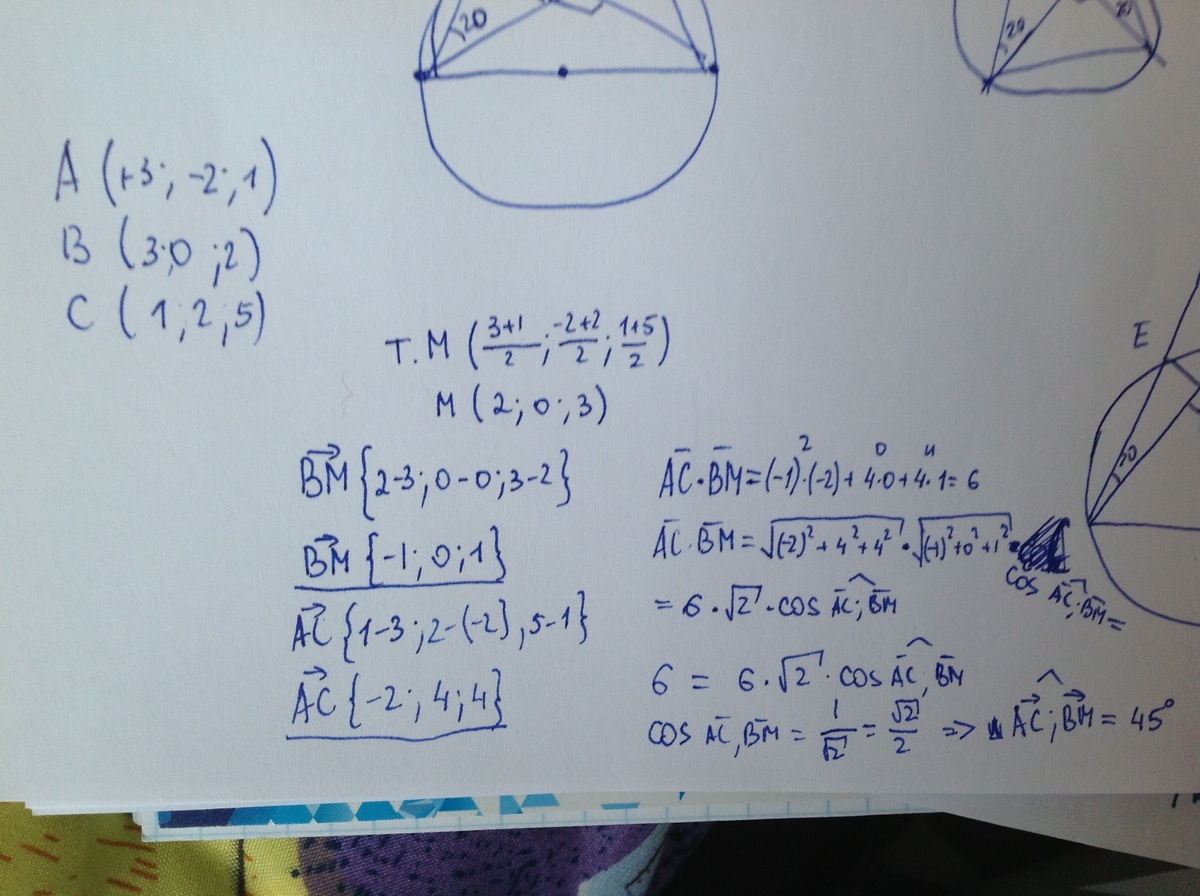 20
20
A (+3; -2; 1)
B (3; 0; 2)
C (1; 2; 5)
T. M (3+1/2; -2+2/2; 1+5/2)
M (2; 0; 3)
E
20
BM {2-3; 0-0; 3-2}
BM {-1; 0; 1}
AC {1-3; 2-(-2), 5-1}
AC {-2; 4; 4}
2 0 4
AC·BM = (-1)·(-2) + 4·0 + 4·1 = 6
AC·BM = √(-2)²+4²+4² · √(-1)²+0²+1² · cos AC;BM =
= 6·√2·cos AC;BM
6 = 6·√2·cos AC,BM
cos AC,BM = 1/√2 = √2/2 => AC;BM = 45°